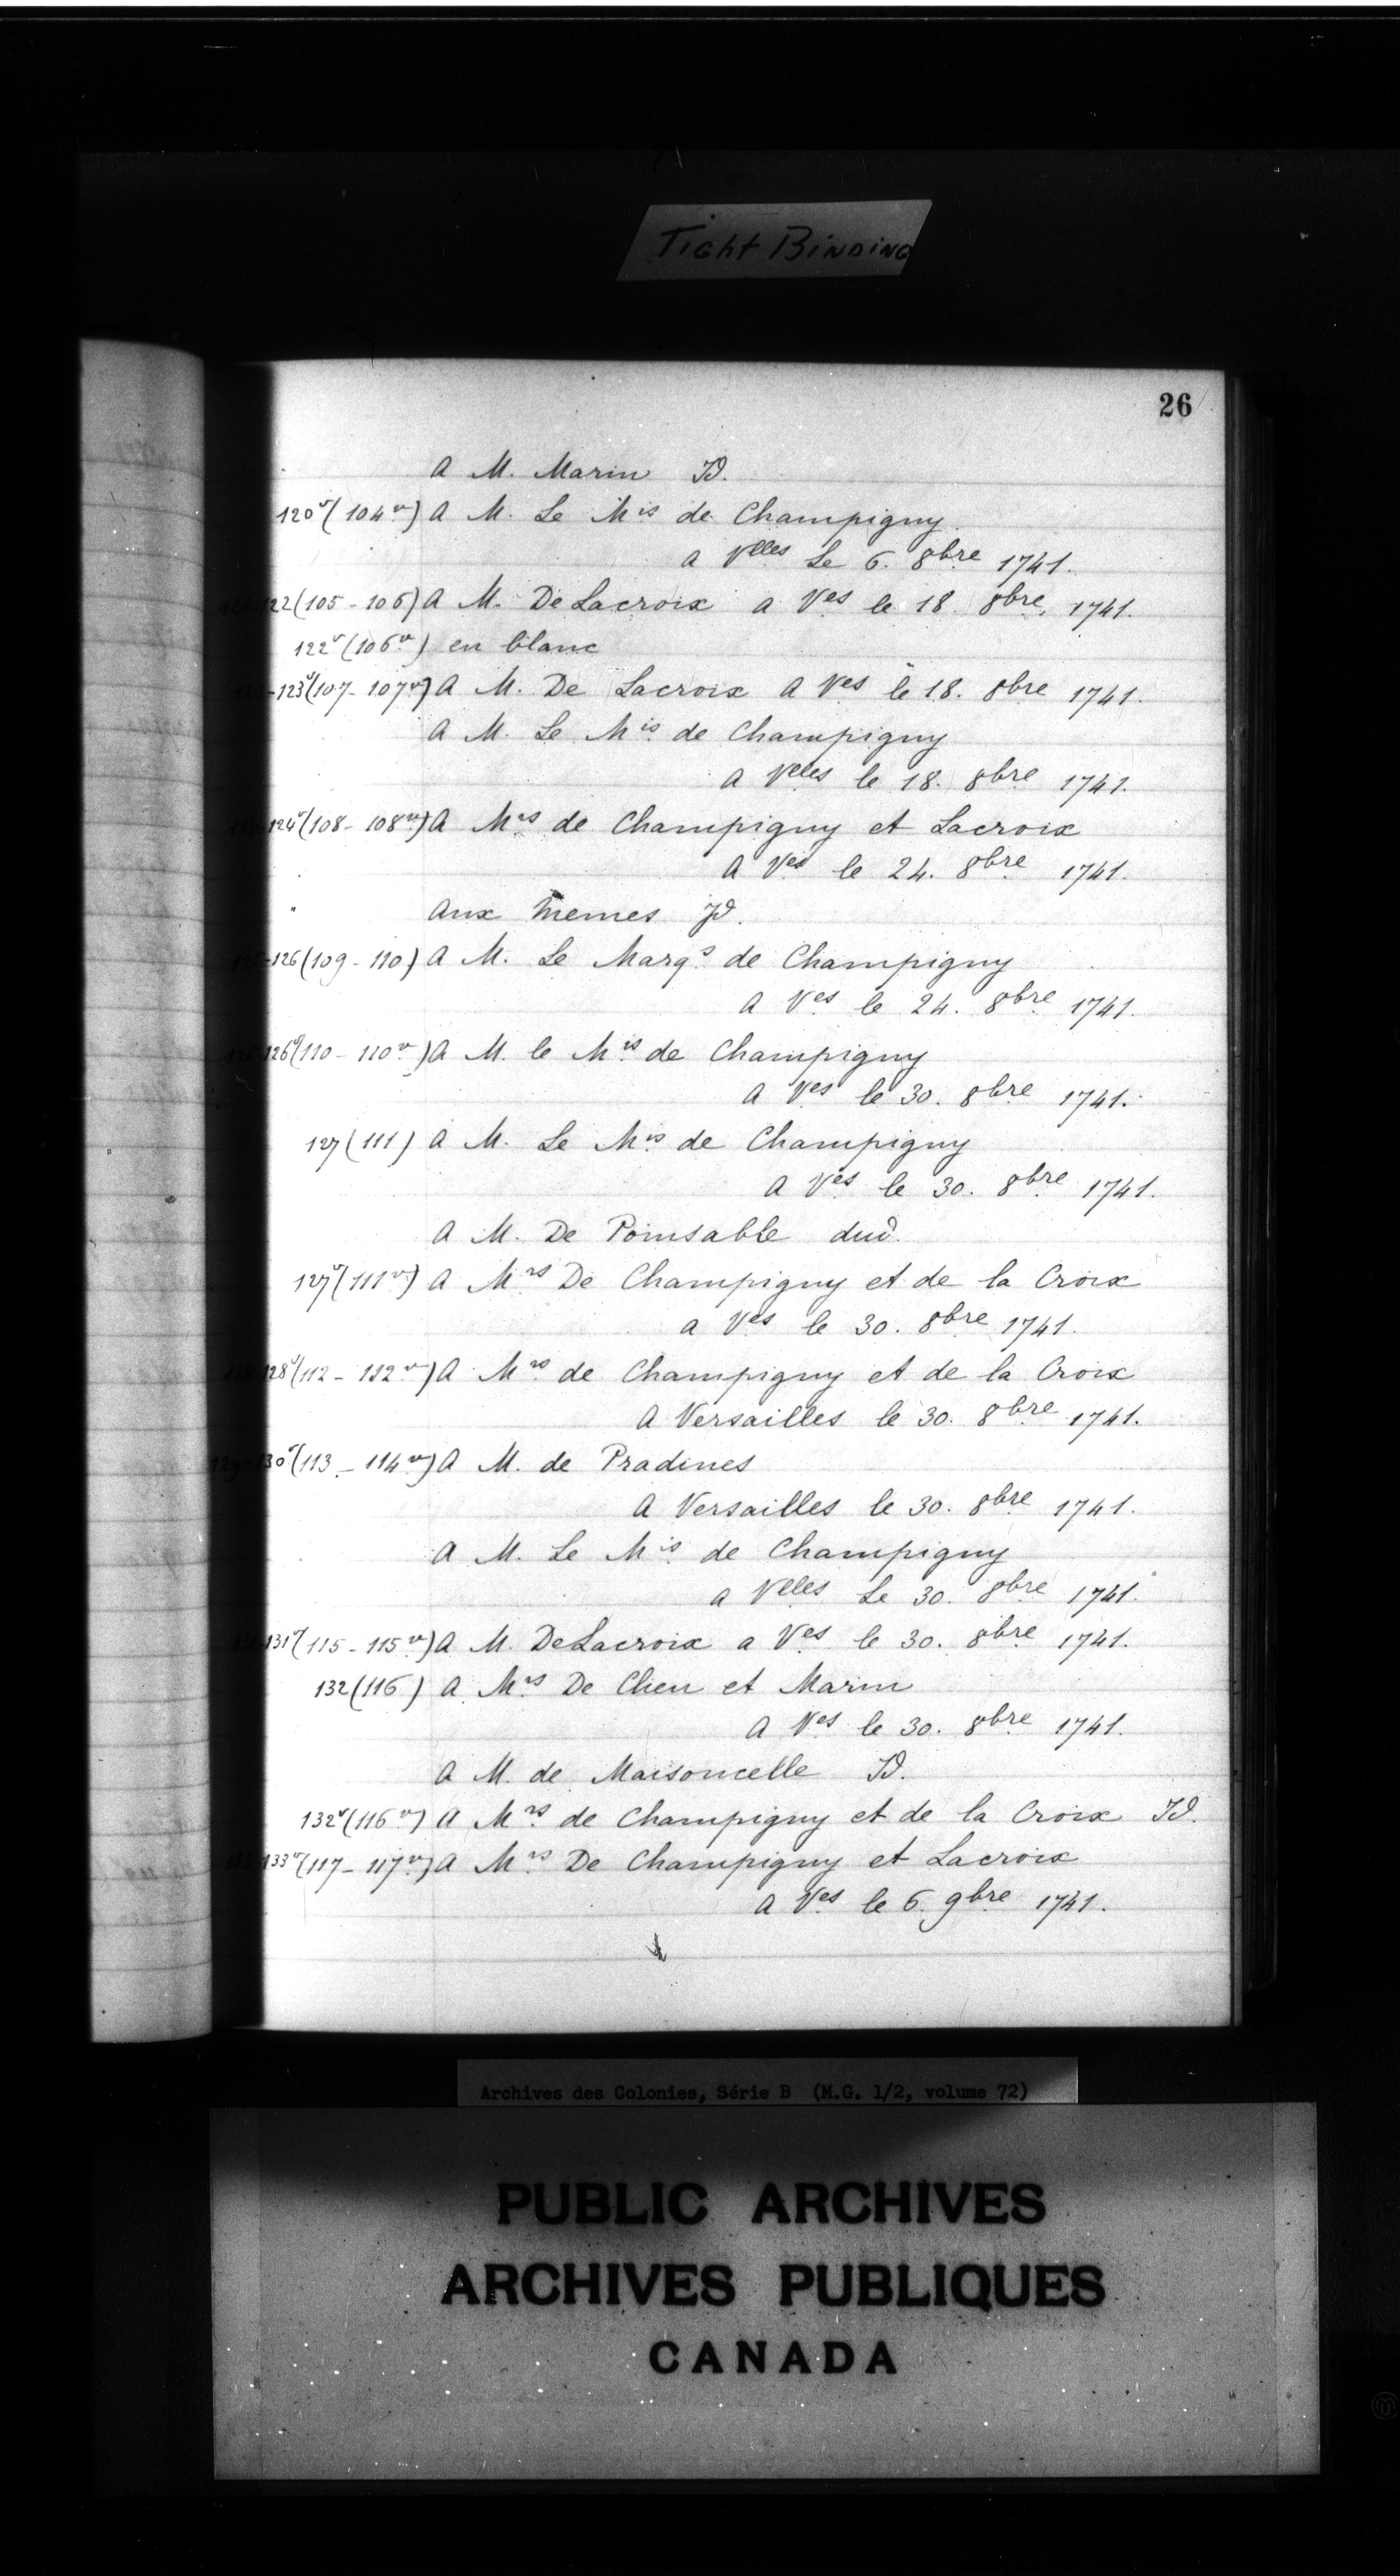 Tight Binding
26
A M. Marin Id.
120v (104v) A M. Le Mis de Champigny
a Vlles Le 6. 8bre 1741.
121-122 (105 - 106) A M. De Lacroix a Ves le 18 8bre, 1741.
122v (106v) en blanc
123-123v (107 - 107v) A M. De Lacroix A Ves le 18. 8bre 1741.
A M. Le Mis de Champigny
A Vlles le 18. 8bre 1741.
124-124v (108 - 108v) A Mrs de Champigny et Lacroix
A Ves le 24. 8bre 1741.
" Aux memes Id.
125-126 (109 - 110) A M. Le Marqs de Champigny
A Ves le 24. 8bre 1741.
126-126v (110 - 110v) A M. le Mis de Champigny
A Ves le 30. 8bre 1741.
127 (111) A M. Le Mis de Champigny
A Ves le 30. 8bre 1741.
A M. De Poinsable dud.
127v (111v) A Mrs De Champigny et de la Croix
a Ves le 30. 8bre 1741.
128-128v (112 - 112v) A Mrs de Champigny et de la Croix
A Versailles le 30. 8bre 1741.
129-130v (113 - 114v) A M. de Pradines
A Versailles le 30. 8bre 1741.
A M. Le Mis de Champigny
a Vlles Le 30. 8bre 1741.
131-131v (115 - 115v) A M. De Lacroix a Ves le 30. 8bre 1741.
132 (116) A Mrs De Clieu et Marin
A Ves le 30. 8bre 1741.
A M. de Maisoncelle Id.
132v (116v) A Mrs de Champigny et de la Croix Id.
133-133v (117 - 117v) A Mrs De Champigny et Lacroix
A Ves le 6. 9bre 1741.
Archives des Colonies, Série B (M.G. 1/2, volume 72)
PUBLIC ARCHIVES
ARCHIVES PUBLIQUES
CANADA